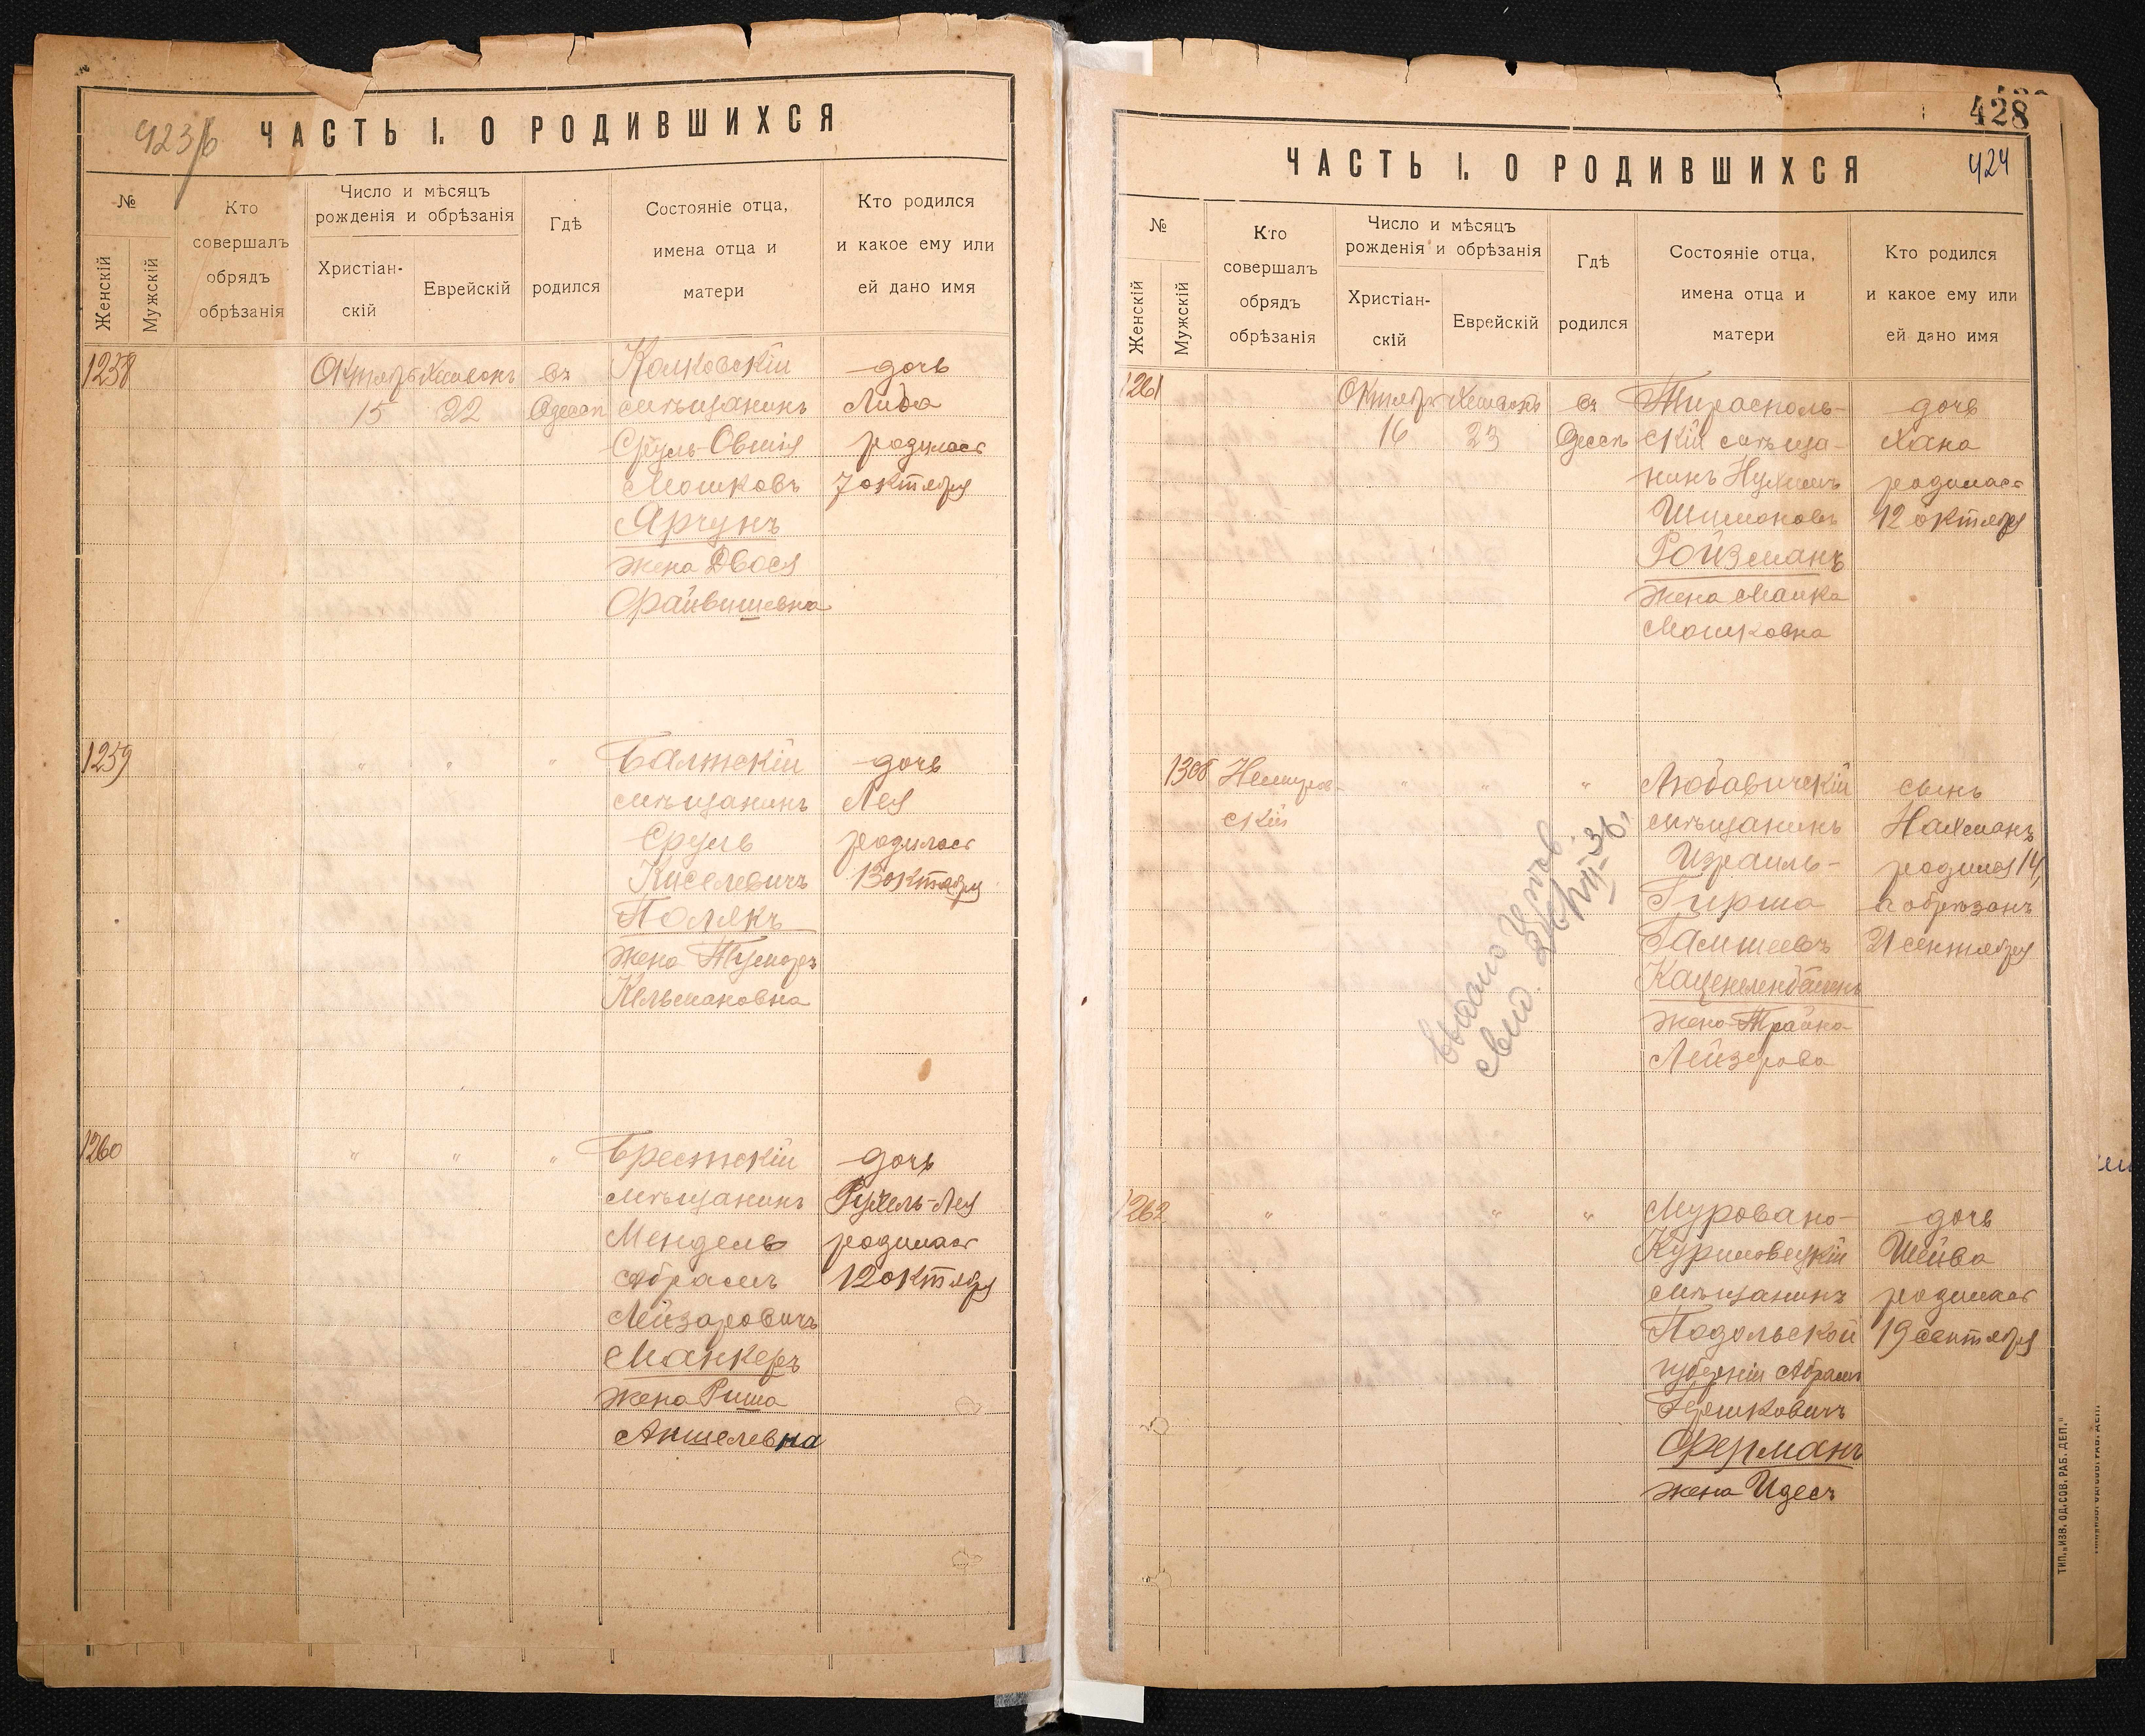 423/б
ЧАСТЬ I. О РОДИВШИХСЯ
№
Женскій
Мужскій
Кто
совершалъ
обрядъ
обрѣзанія
Число и мѣсяцъ
рожденія и обрѣзанія
Христіан-
скій
Еврейскій
Гдѣ
родился
Состояніе отца,
имена отца и
матери
Кто родился
и какое ему или
ей дано имя
1258
Октябр Хешвонъ
15 22
въ
Одессѣ
Колковскій
мѣщанинъ
Сруль-Овшія
Мошковъ
Ярчунъ
жена Двося
Файвишевна
дочь
Либа
родилась
7 октября
1259
" " "
Балтскій
мѣщанинъ
Сруль
Киселевичъ
Полякъ
жена
Кельмановна
дочь
Лея
родилась
13 октября
1260
" " "
Брестскій
мѣщанинъ
Мендель
Абрамъ
Лейзаровичъ
Манкеръ
жена Риша
Аншелевна
дочь
Рухель-Лея
родилась
12 октября
428
424
ЧАСТЬ I. О РОДИВШИХСЯ
№
Женскій
Мужскій
Кто
совершалъ
обрядъ
обрѣзанія
Число и мѣсяцъ
рожденія и обрѣзанія
Христіан-
скій
Еврейскій
Гдѣ
родился
Состояніе отца,
имена отца и
матери
Кто родился
и какое ему или
ей дано имя
1261
Октябр Хешвонъ
16 23
въ
Одессѣ
Тирасполь-
скій мѣща-
нинъ Нухимъ
Шимоновъ
Ройзманъ
жена Малка
Мошковна
дочь
Хана
родилась
12 октября
1308
Немиров-
скій
" " "
Любавичскій
мѣщанинъ
Израиль-
Гирша
Каценеленбогенъ
жена Трайна
Лейзерова
сынъ
Нахманъ
родился 14,
а обрѣзанъ
21 сентября
Выдано
свид.
1262
" " " "
Муровано-
Куриловецкій
мѣщанинъ
Подольской
губерніи Абрамъ
Гершковичъ
Ферманъ
жена Идесъ
дочь
Шейва
родилась
19 сентября
ТИП. „ИЗВ. ОД. СОВ. РАБ. ДЕП."